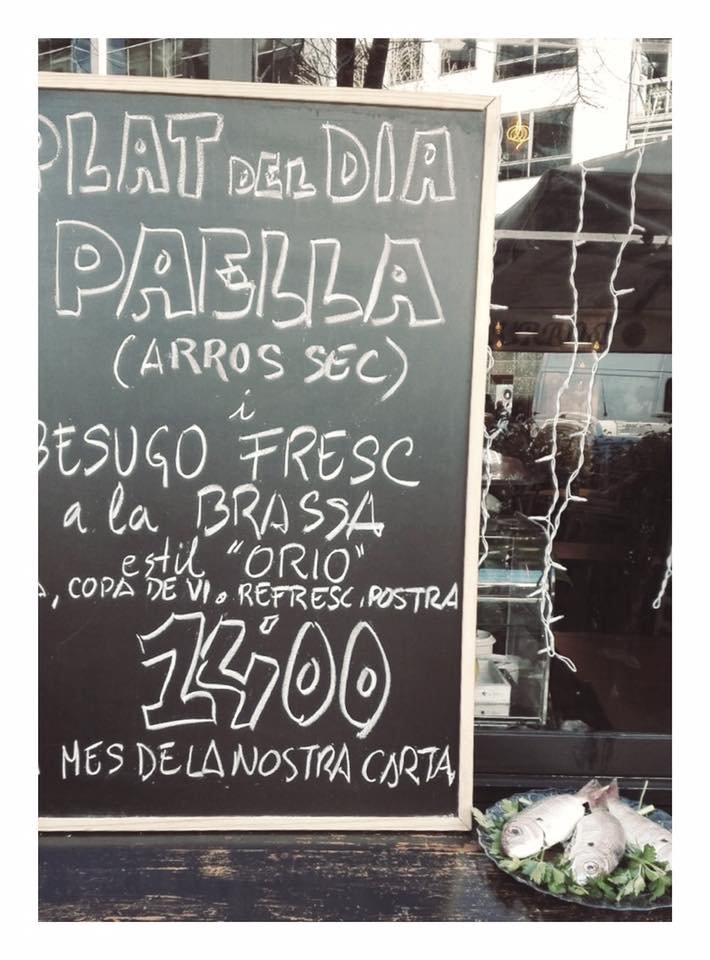 PLAT DEL DIA
PAELLA
(ARROS SEC)
i
BESUGO FRESC
a la BRASSA
estil "ORIO"
, COPA DE VI o REFRESC i POSTRA
14'00
MES DE LA NOSTRA CARTA